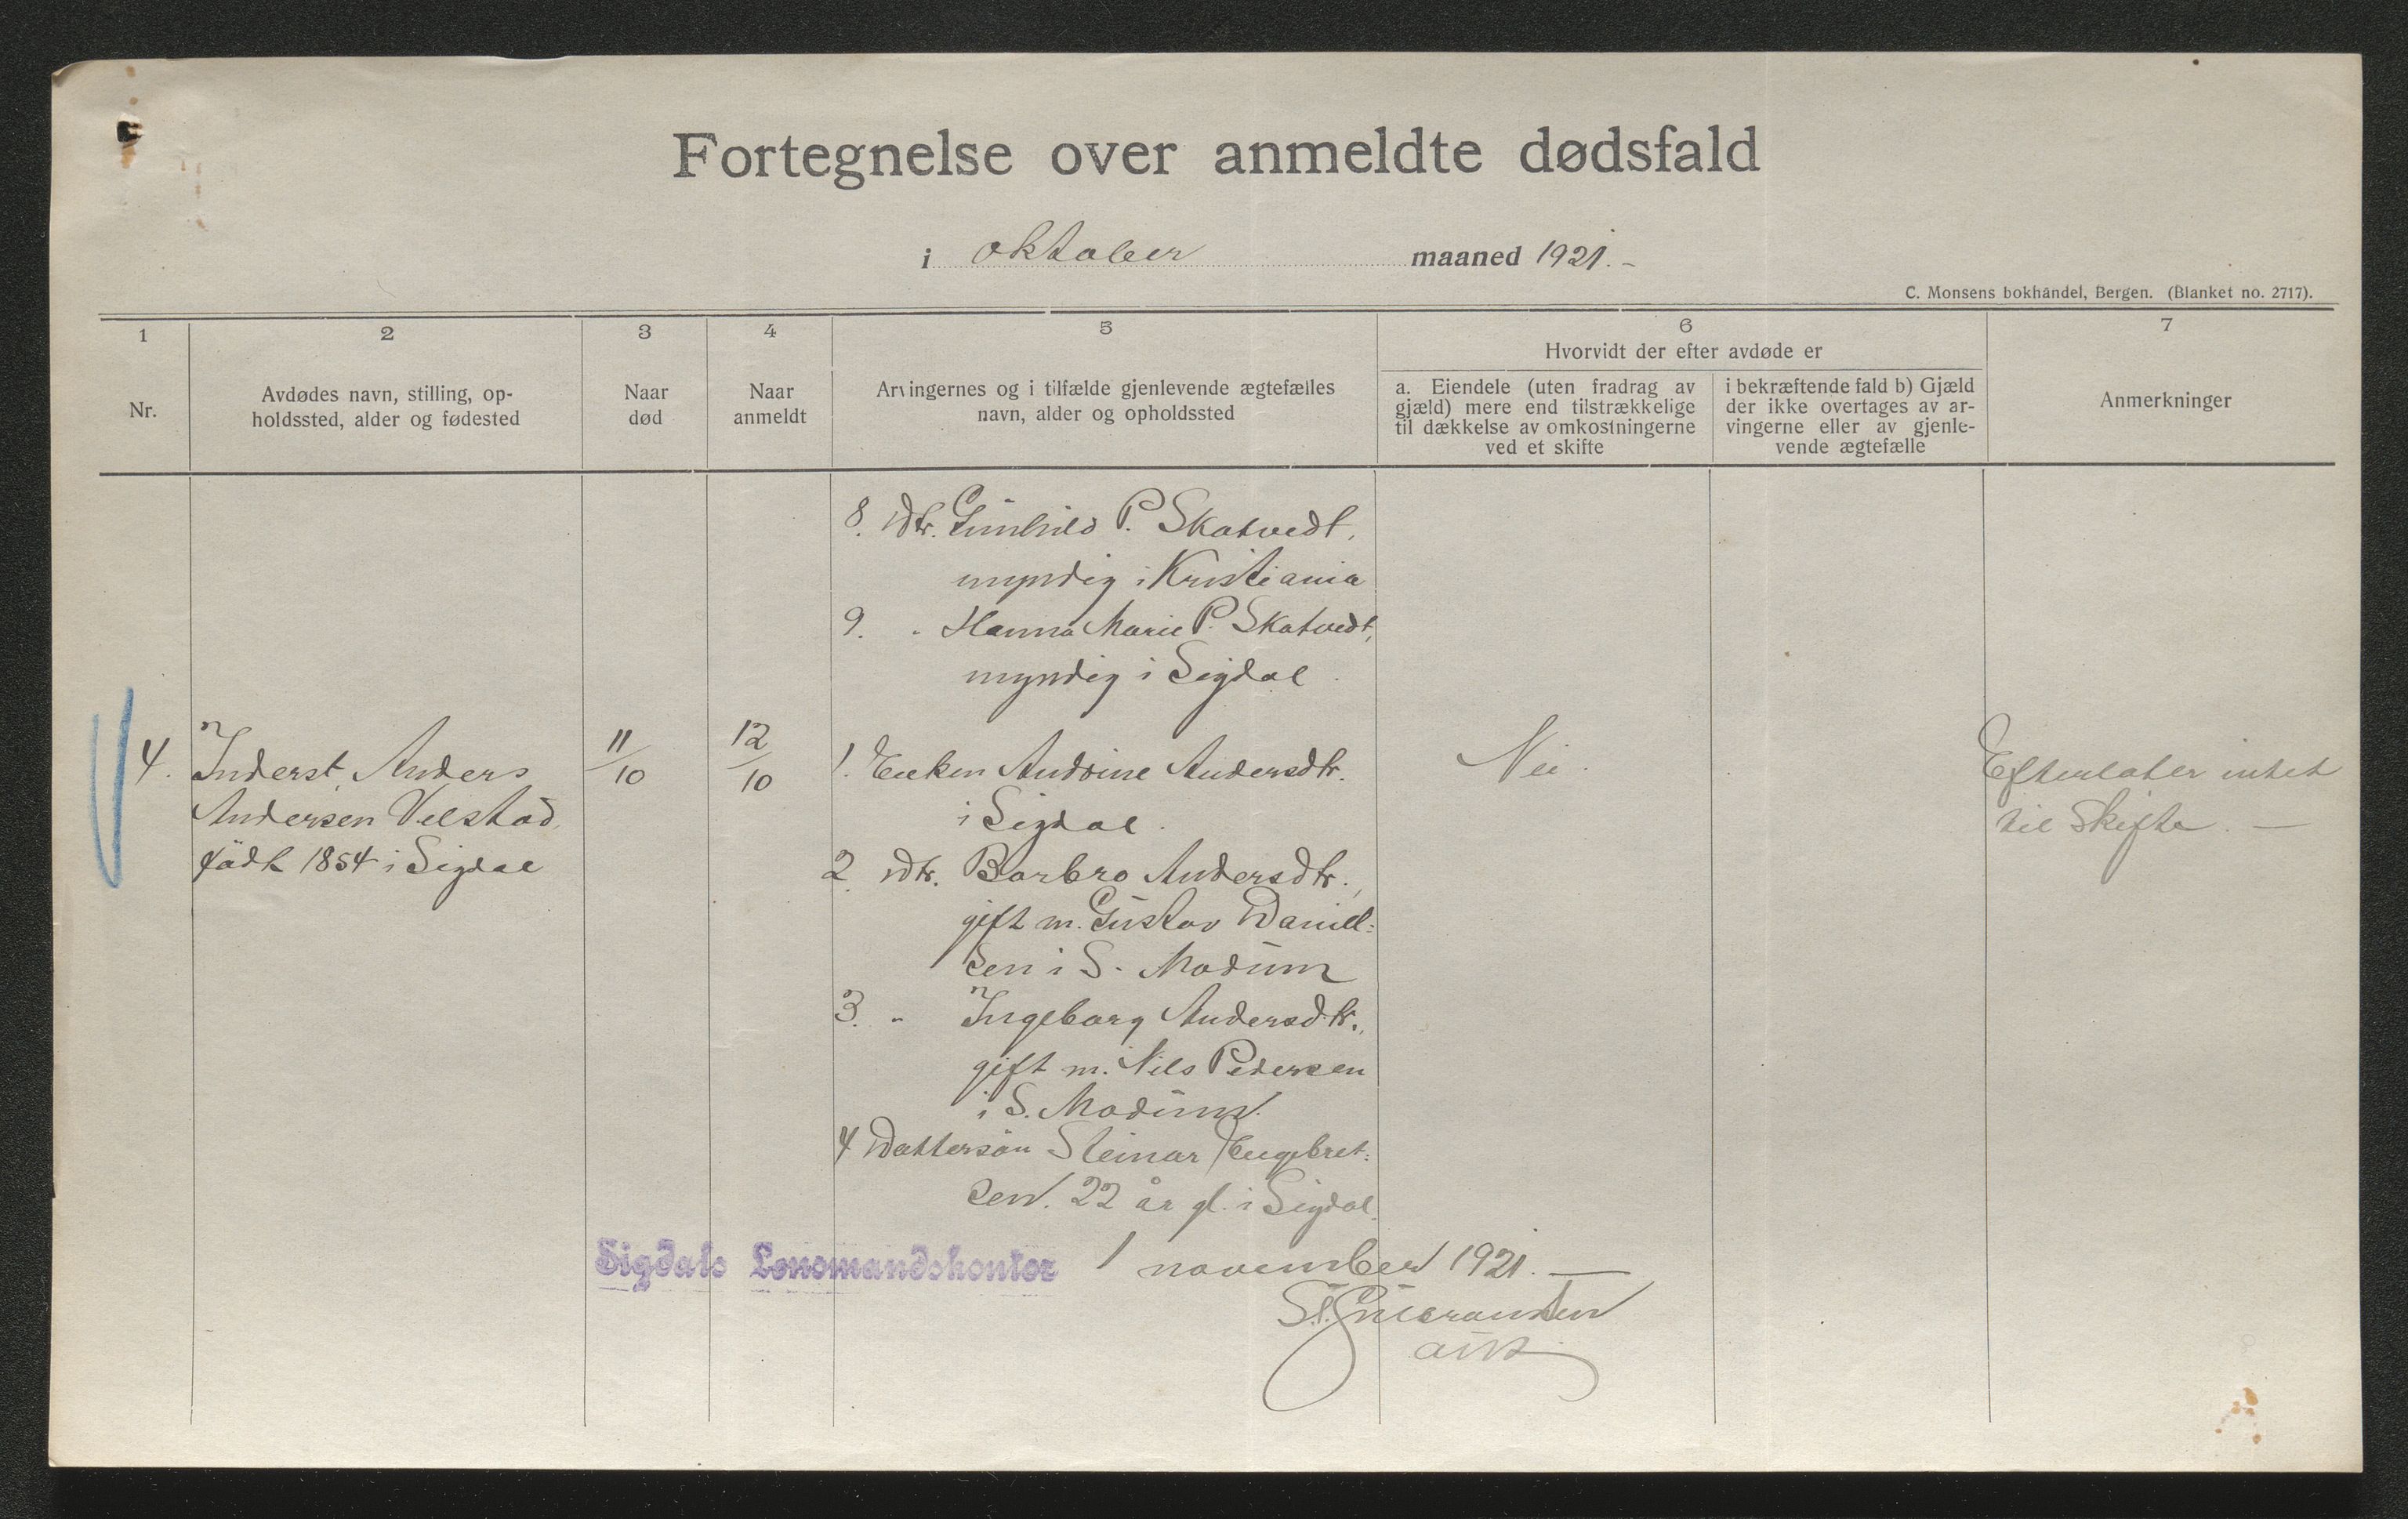 Fortegnelse over anmeldte dødsfald
i oktober maaned 1921. -
C. Monsens bokhandel, Bergen. (Blanket no. 2717).
1
Nr.
2
Avdødes navn, stilling, op-
holdssted, alder og fødested
3
Naar
død
4
Naar
anmeldt
5
Arvingernes og i tilfælde gjenlevende ægtefælles
navn, alder og opholdssted
6
Hvorvidt der efter avdøde er
a. Eiendele (uten fradrag av
gjæld) mere end tilstrækkelige
til dækkelse av omkostningerne
ved et skifte
i bekræftende fald b) Gjæld
der ikke overtages av ar-
vingerne eller av gjenle-
vende ægtefælle
7
Anmerkninger
8. Dtr. Gunhild P. Skatvedt,
myndig i Kristiania
9. " Hanna Marie P. Skatvedt,
myndig i Sigdal.
4. Inderst, Anders
Andersen Velstad,
født 1854 i Sigdal
11/10
12/10
1. Enken Andrine Andersdtr.
i Sigdal.
2. Dtr. Barbro Andersdtr.,
gift m. Gustav Daniel-
sen i S. Modum
3. " Ingeborg Andersdtr.,
gift m. Nils Pedersen
i S. Modum.
4 Dattersøn Steinar Engebret-
sen. 22 år gl. i Sigdal.
Nei.
Efterlater intet
til Skifte. -
Sigdals Lensmandskontor 1 november 1921. -